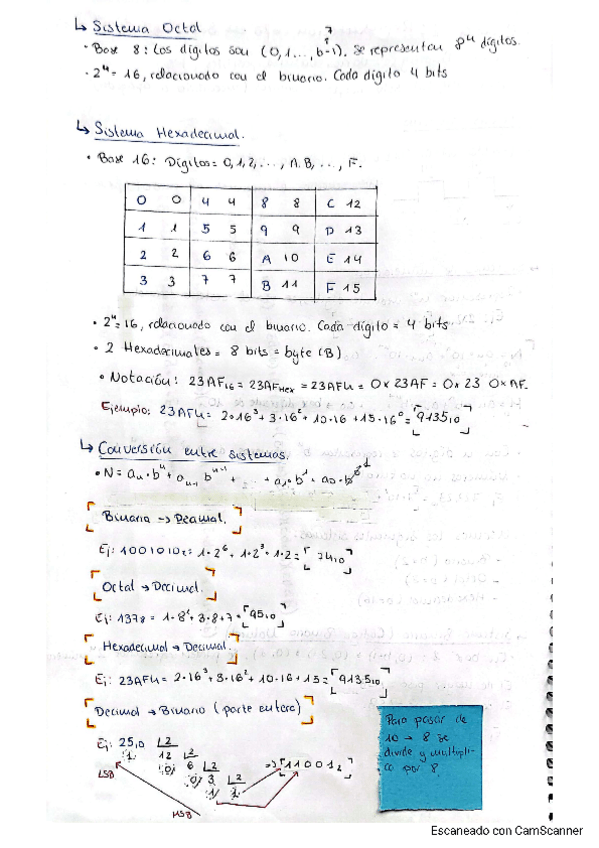 ↳ Sistema Octal
7
• Base 8: Los dígitos son (0,1..., b-1). Se representan 8ⁿ dígitos.
• 2⁴ = 16, relacionado con el binario. Cada dígito 4 bits
↳ Sistema Hexadecimal.
• Base 16: Dígitos = 0,1,2,..., A.B,..., F.
0 0 4 4 8 8 C 12
1 1 5 5 9 9 D 13
2 2 6 6 A 10 E 14
3 3 7 7 B 11 F 15
• 2⁴=16, relacionado con el binario. Cada dígito = 4 bits
• 2 Hexadecimales = 8 bits = byte (B)
• Notación: 23AF₁₆ = 23AFHex = 23AFh = 0x23AF = 0x 23 0xAF.
Ejemplo: 23AFh = 2·16³ + 3·16² + 10·16 + 15·16⁰ = 9135₁₀
↳ Conversión entre sistemas.
• N = aₙ·bⁿ + aₙ₋₁ bⁿ⁻¹ + ... + a₁·b¹ + a₀·b⁰
Binario → Decimal.
Ej: 1001010₂ = 1·2⁶ + 1·2³ + 1·2 = 74₁₀
Octal → Decimal.
Ej: 137₈ = 1·8² + 3·8 + 7 = 95₁₀
Hexadecimal → Decimal.
Ej: 23AFh = 2·16³ + 3·16² + 10·16 + 15 = 9135₁₀
Decimal → Binario (parte entera)
Ej: 25₁₀ 2
1 12 2 ⇒ 11001₂
0 6 2
LSB 0 3 2
1 1
MSB
Para pasar de
10 → 8 se
divide y multipli-
ca por 8
Escaneado con CamScanner